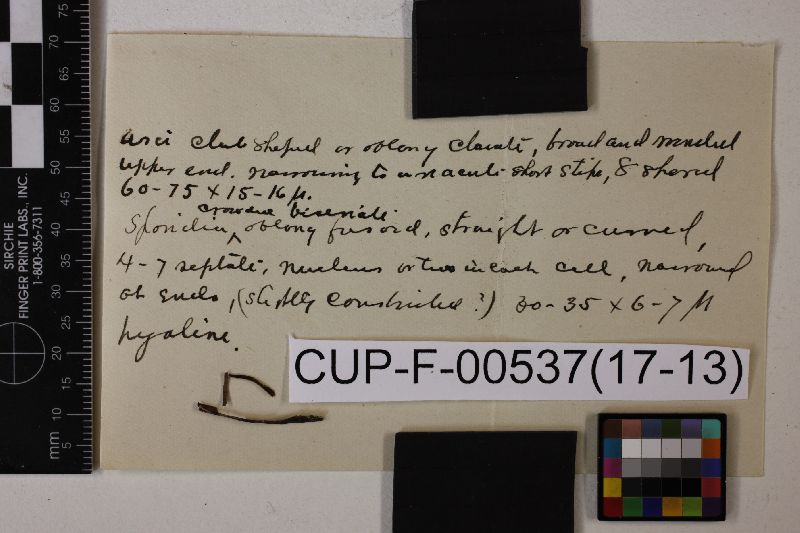 asci club shaped or oblong clavate, broad and rounded
upper end. narrowing to an acute short stipe, 8 spored
60-75 x 15-16 µ.
crowded biseriate
Sporidia ^ oblong fusoid, straight or curved,
4-7 septate, nucleus or two in each cell, narrowed
at ends, (slightly constricted?) 30-35 x 6-7 µ
hyaline.
CUP-F-00537(17-13)
SIRCHIE
FINGER PRINT LABS., INC.
1-800-356-7311
mm 5 10 15 20 25 30 35 40 45 50 55 60 65 70 75